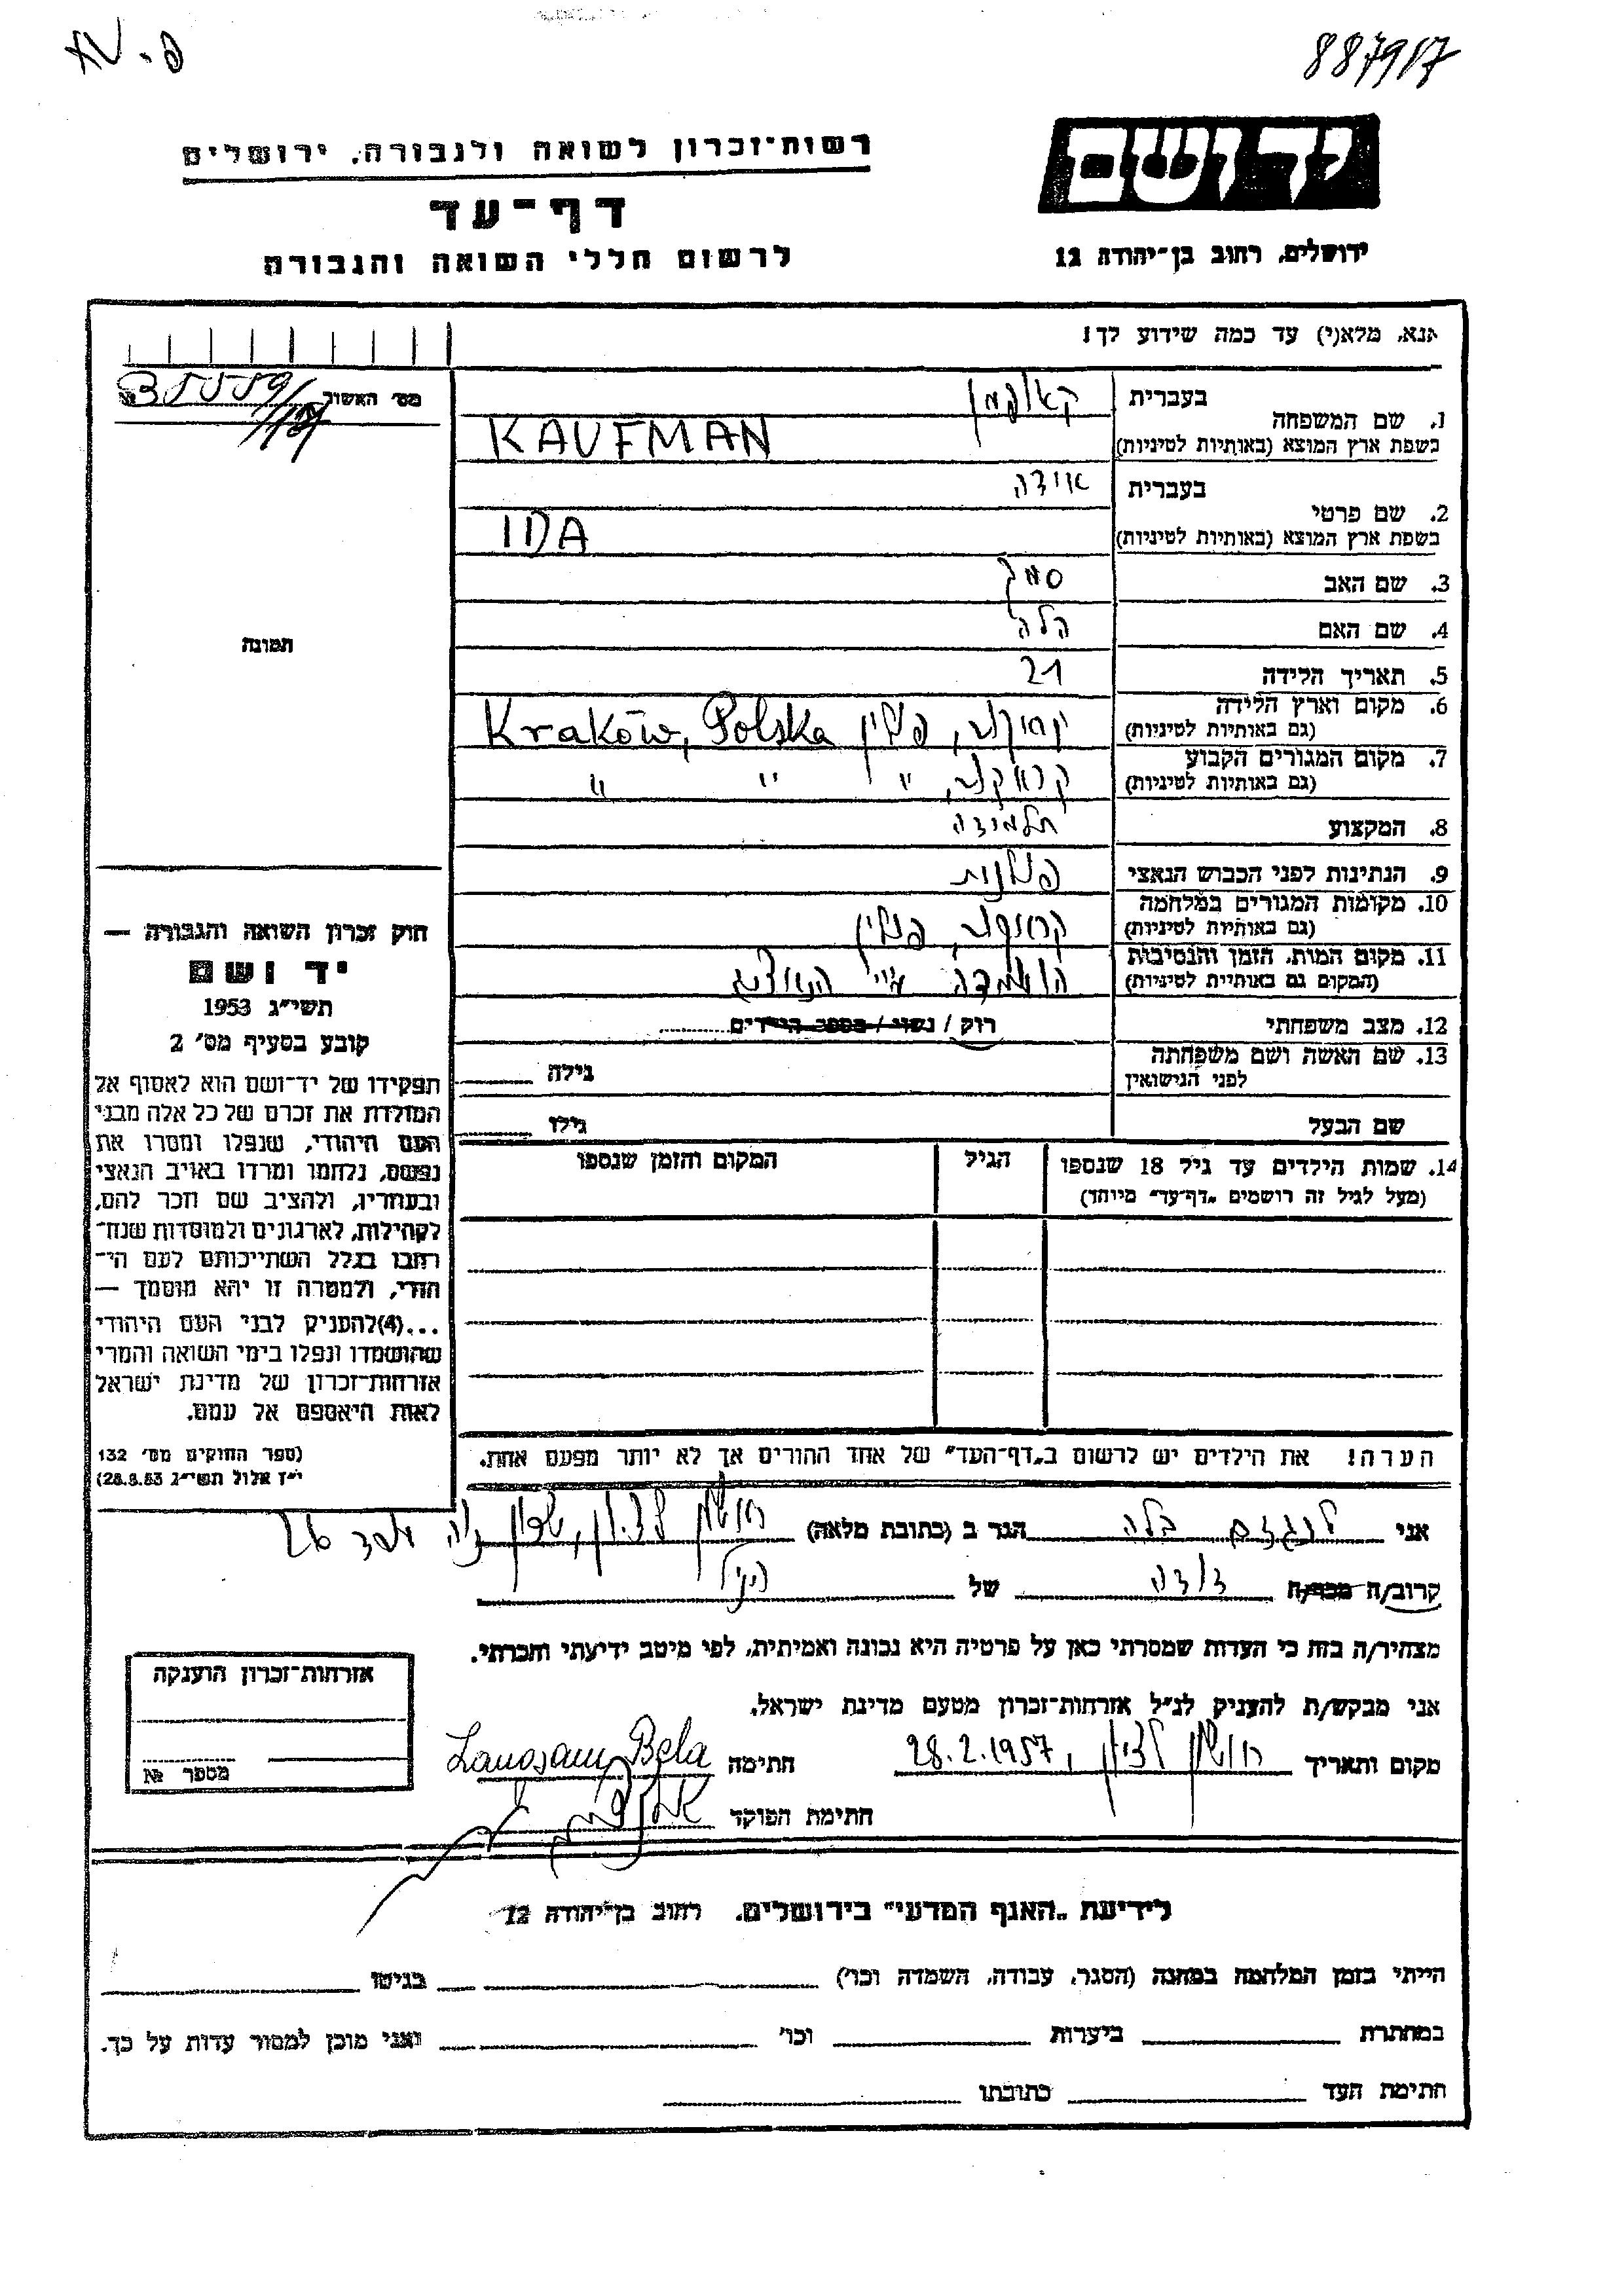 887917
יד ושם
רשות-זכרון לשואה ולגבורה, ירושלים
דף-עד
לרשום חללי השואה והגבורה
ירושלים, רחוב בן-יהודה 12
אנא, מלא(י) עד כמה שידוע לך!
מס' האשור
1. שם המשפחה
בעברית קאופמן
בשפת ארץ המוצא (באותיות לטיניות) KAUFMAN
2. שם פרטי
בעברית אידה
בשפת ארץ המוצא (באותיות לטיניות) IDA
3. שם האב
4. שם האם הלה
5. תאריך הלידה 21
6. מקום וארץ הלידה
(גם באותיות לטיניות) קרקוב, פולין Kraków, Polska
7. מקום המגורים הקבוע
(גם באותיות לטיניות) קרקוב, " " "
8. המקצוע תלמידה
9. הנתינות לפני הכבוש הנאצי פולנית
10. מקומות המגורים במלחמה
(גם באותיות לטיניות) קרקוב, פולין
11. מקום המות, הזמן והנסיבות
(המקום גם באותיות לטיניות) הושמדה ע"י הנאצים
12. מצב משפחתי רוק / נשוי / מספר הילדים
13. שם האשה ושם משפחתה
לפני הנישואין
גילה
שם הבעל
גילו
14. שמות הילדים עד גיל 18 שנספו
(מעל לגיל זה רושמים "דף-עד" מיוחד)
הגיל
המקום והזמן שנספו
הערה! את הילדים יש לרשום ב"דף-העד" של אחד ההורים אך לא יותר מפעם אחת.
תמונה
חוק זכרון השואה והגבורה —
יד ושם
תשי"ג 1953
קובע בסעיף מס' 2
תפקידו של יד-ושם הוא לאסוף אל
המולדת את זכרם של כל אלה מבני
העם היהודי, שנפלו ומסרו את
נפשם, נלחמו ומרדו באויב הנאצי
ובעוזריו, ולהציב שם וזכר להם,
לקהילות, לארגונים ולמוסדות שנח-
רבו בגלל השתייכותם לעם הי-
הודי, ולמטרה זו יהא מוסמך —
...(4)להעניק לבני העם היהודי
שהושמדו ונפלו בימי השואה והמרי
אזרחות-זכרון של מדינת ישראל
לאות היאספם אל עמם.
(ספר החוקים מס' 132
י"ז אלול תשי"ג 28.8.53)
אני לנגזם בלה הגר ב (כתובת מלאה) ראשון לציון, שכון 26
קרוב/ה מכר/ה דודה של הנ"ל
מצהיר/ה בזה כי העדות שמסרתי כאן על פרטיה היא נכונה ואמיתית, לפי מיטב ידיעתי והכרתי.
אני מבקש/ת להעניק לנ"ל אזרחות-זכרון מטעם מדינת ישראל.
מקום ותאריך ראשון לציון, 28.2.1957 חתימה Langsam Bela
חתימת הפוקד
אזרחות-זכרון הוענקה
מספר №
לידיעת "האגף המדעי" בירושלים, רחוב בן-יהודה 12
הייתי בזמן המלחמה במחנה (הסגר, עבודה, השמדה וכו') בגיטו
במחתרת ביערות וכו' ואני מוכן למסור עדות על כך.
חתימת העד כתובתו